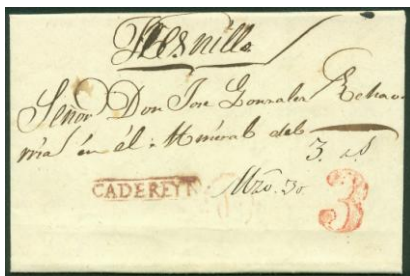 Fresnillo
Señor Don Jose Gonzales Echav-
rria en el Mineral del
3. rs
CADEREYT
Mzo. 30.
3